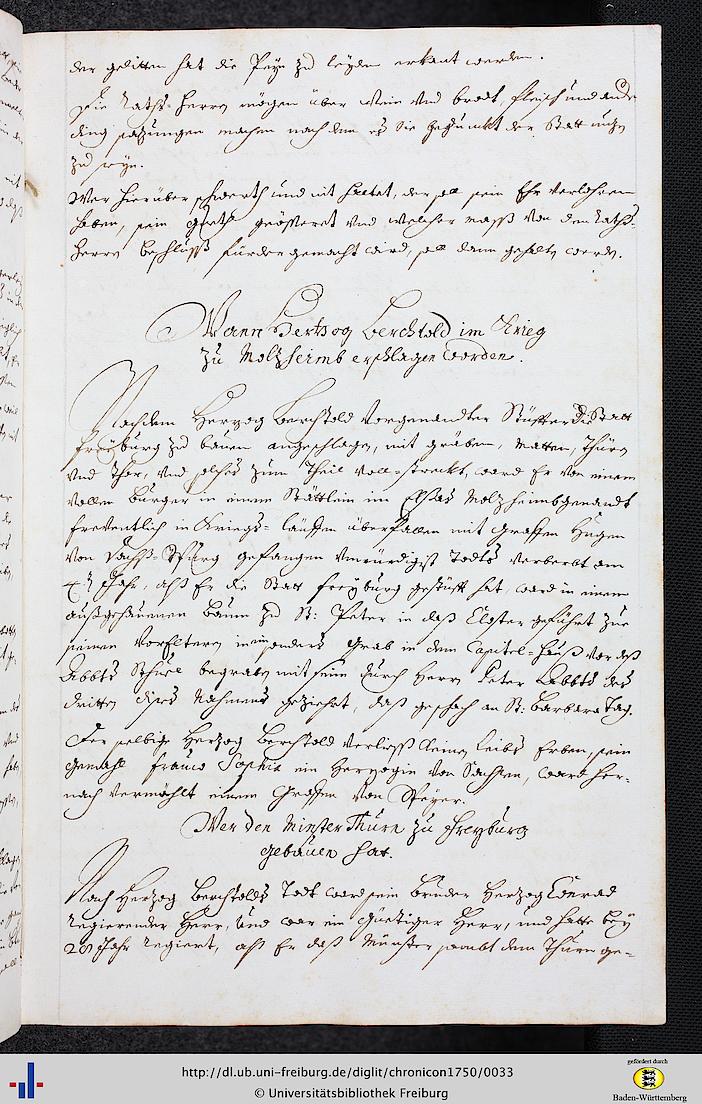 der gelitten hat die Peyn zu leyden erkant werden.
Die Raths-Herren mögen über Wein und brodt, fleisch und andere
ding satzungen machen nach dem es Sie gedunckt der Statt nutz
zu seyn.
Wer hierüber schwerth und nit haltet, der soll sein Ehr verlohren
haben, sein gueth geöffneret und welcher mass von den Raths-
Herren beschluss fürder gemacht wird, soll dann gehalten werden.
Wann Hertzog Berchtold im Krieg
zu Molzheimb erschlagen worden.
Nachdem Herzog Berchtold vorgenandter Stüffter die Statt
freyburg zu bauen angeschlagen, mit gräben, Mauren, Thürn
und Thor, und solches zum Theil vollstreckt, ward Er von einem
vollen burger in einem Stättlein im Elsas Molzheimb genandt
freventlich in Kriegs-läuffen überfallen mit Graffen Hugen
von gefangen unwürdigist Todts verderbt am
Jahr, alss Er die Statt freyburg gestüfft hat, ward in einem
aussgehauenen Baum zu St: Peter in dass Closter geführt zue
seinen Voreltern in Grab in dem Capitel-hauss vor dess
Abbts Stuel begraben mit durch Herrn Peter Abbts des
dritten dises Nahmens geziehret, dass geschach an St: Barbara Tag.
Der selbige Herzog Berchtold verliess keinen Leibs Erben, sein
Gemahl frauw Sophia ein Herzogin von Sachsen, ward her-
nach vermählt einem Graffen von Speyer.
Wer den Minster Thurn zu Freyburg
gebauen hat.
Nach Herzog Berchtolds Todt ward sein Bruder Herzog Conrad
Regierender Herr, Und war ein Güetiger Herr, und hatte bey
28 Jahr Regiert, alss Er dass Münster sambt dem Thurn ge-
http://dl.ub.uni-freiburg.de/diglit/chronicon1750/0033
© Universitätsbibliothek Freiburg
gefördert durch
Baden-Württemberg